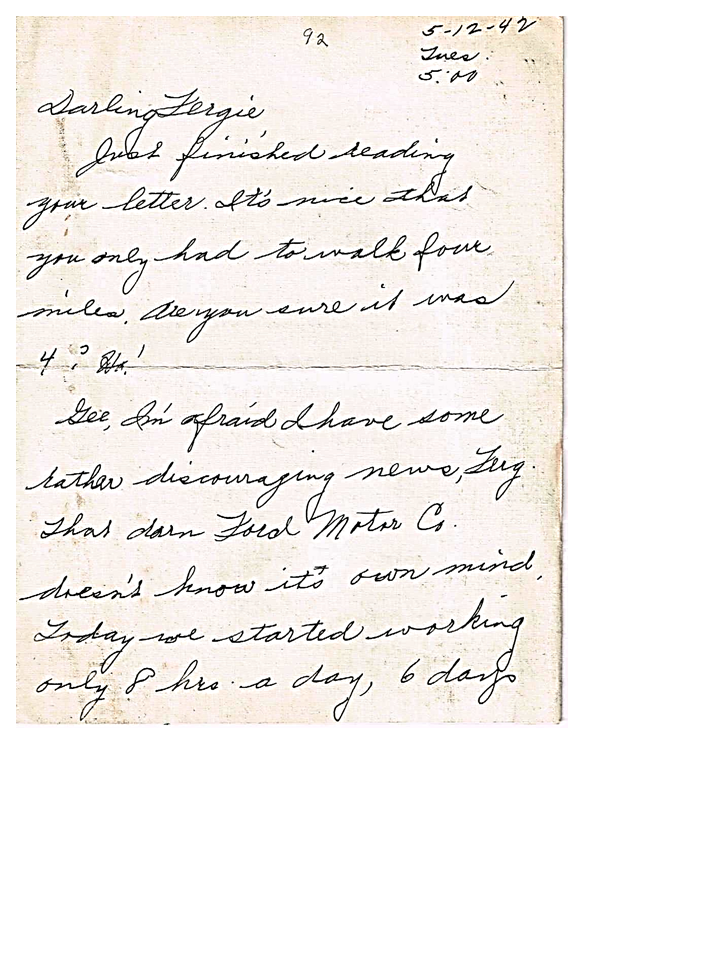 92
5-12-42
Tues.
5:00
Darling Fergie
Just finished reading
your letter. It's nice that
you only had to walk four
miles. Are you sure it was
4? Ha!
Gee, I'm afraid I have some
rather discouraging news, Ferg.
That darn Ford Motor Co.
doesn't know it's own mind.
Today we started working
only 8 hrs. a day, 6 days